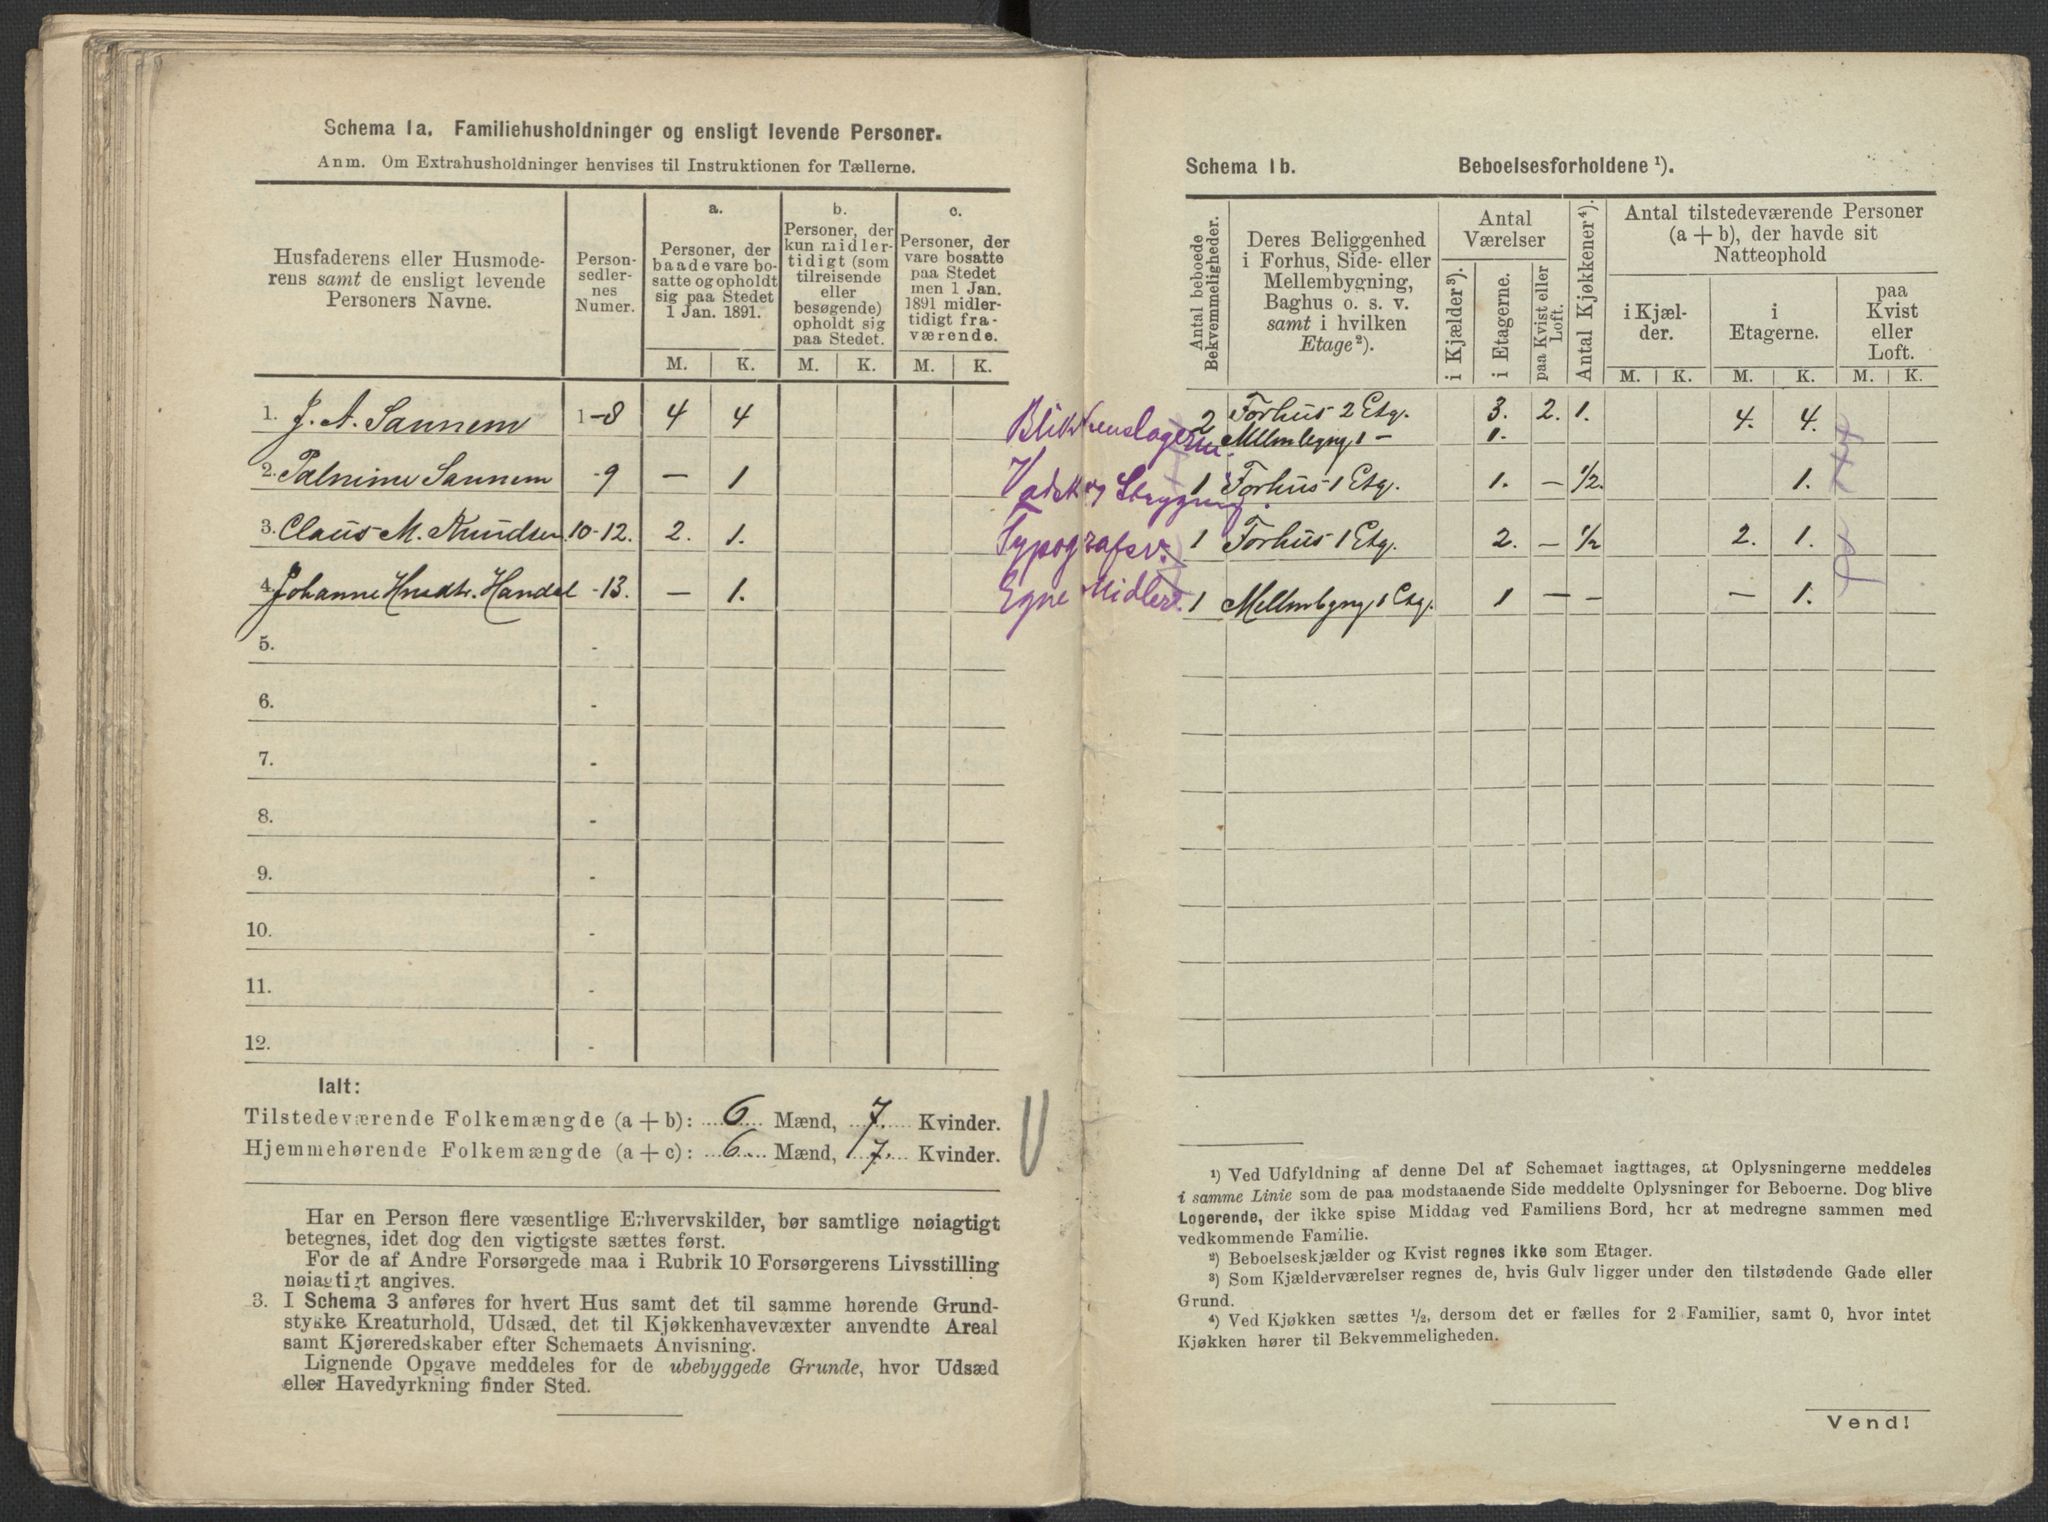 Schema 1a. Familiehusholdninger og ensligt levende Personer.
Anm. Om Extrahusholdninger henvises til Instruktionen for Tællerne.
Husfaderens eller Husmode-
rens samt de ensligt levende
Personers Navne.
Person-
sedler-
nes
Numer.
a.
Personer, der
baade vare bo-
satte og opholdt
sig paa Stedet
1 Jan. 1891.
b.
Personer, der
kun midler-
tidigt (som
tilreisende
eller
besøgende)
opholdt sig
paa Stedet.
c.
Personer, der
vare bosatte
paa Stedet
men 1 Jan.
1891 midler-
tidigt fra-
værende.
M. K. M. K. M. K.
1. J. A. Sannem 1-8 4 4
2. Palnime Sannem -9 — 1
3. Claus M. Knudsen 10-12. 2. 1.
4. Johanne Handel -13. — 1.
5. -
6. -
7. -
8. -
9. -
10. -
11. -
12. -
Ialt:
Tilstedeværende Folkemængde (a + b): 6 Mænd, 7. Kvinder.
Hjemmehørende Folkemængde (a + c): 6 Mænd, 7. Kvinder.
Har en Person flere væsentlige Erhvervskilder, bør samtlige nøiagtigt
betegnes, idet dog den vigtigste sættes først.
For de af Andre Forsørgede maa i Rubrik 10 Forsørgerens Livsstilling
nøiagtigt angives.
3. I Schema 3 anføres for hvert Hus samt det til samme hørende Grund-
stykke Kreaturhold, Udsæd, det til Kjøkkenhavevæxter anvendte Areal
samt Kjøreredskaber efter Schemaets Anvisning.
Lignende Opgave meddeles for de ubebyggede Grunde, hvor Udsæd
eller Havedyrkning finder Sted.
Schema 1b. Beboelsesforholdene ¹).
Antal beboede
Bekvemmeligheder.
Deres Beliggenhed
i Forhus, Side- eller
Mellembygning,
Baghus o. s. v.
samt i hvilken
Etage²).
Antal
Værelser
i Kjælder³).
i Etagerne.
paa Kvist eller
Loft.
Antal Kjøkkener⁴).
Antal tilstedeværende Personer
(a + b), der havde sit
Natteophold
i Kjæl-
der.
i
Etagerne.
paa
Kvist
eller
Loft.
M. K. M. K. M. K.
Blikkenslagersv. 2 Forhus 2 Etg. 3. 2. 1. 4. 4.
Mellmbygng 1 — 1.
Vadsk og Strygning. 1 Forhus 1 Etg. 1. — 1/2. 1.
Typografsv. 1 Forhus 1 Etg. 2. — 1/2 2. 1.
Egne Midler. 1 Mellmbygng 1 Etg. 1 — — — 1.
¹) Ved Udfyldning af denne Del af Schemaet iagttages, at Oplysningerne meddeles
i samme Linie som de paa modstaaende Side meddelte Oplysninger for Beboerne. Dog blive
Logerende, der ikke spise Middag ved Familiens Bord, her at medregne sammen med
vedkommende Familie.
²) Beboelseskjælder og Kvist regnes ikke som Etager.
³) Som Kjælderværelser regnes de, hvis Gulv ligger under den tilstødende Gade eller
Grund.
⁴) Ved Kjøkken sættes ½, dersom det er fælles for 2 Familier, samt 0, hvor intet
Kjøkken hører til Bekvemmeligheden.
Vend!